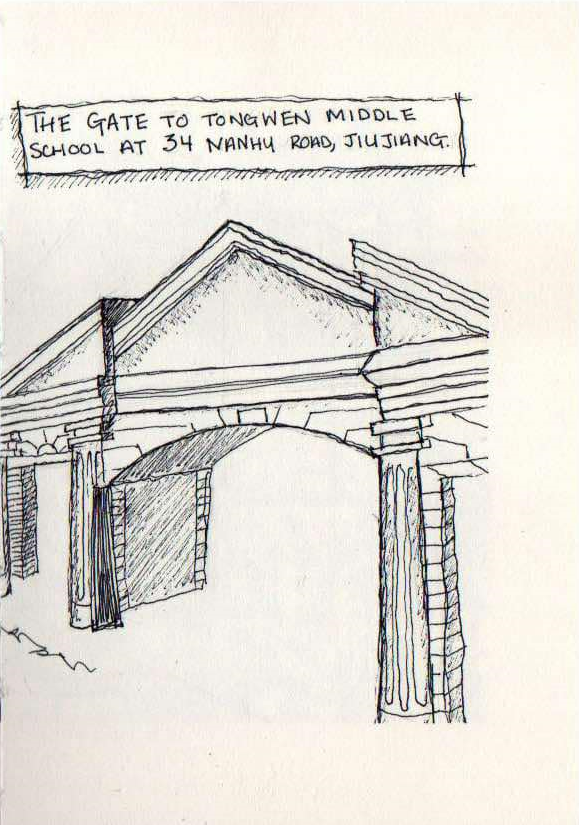 THE GATE TO TONGWEN MIDDLE
SCHOOL AT 34 NANHU ROAD, JIUJIANG.